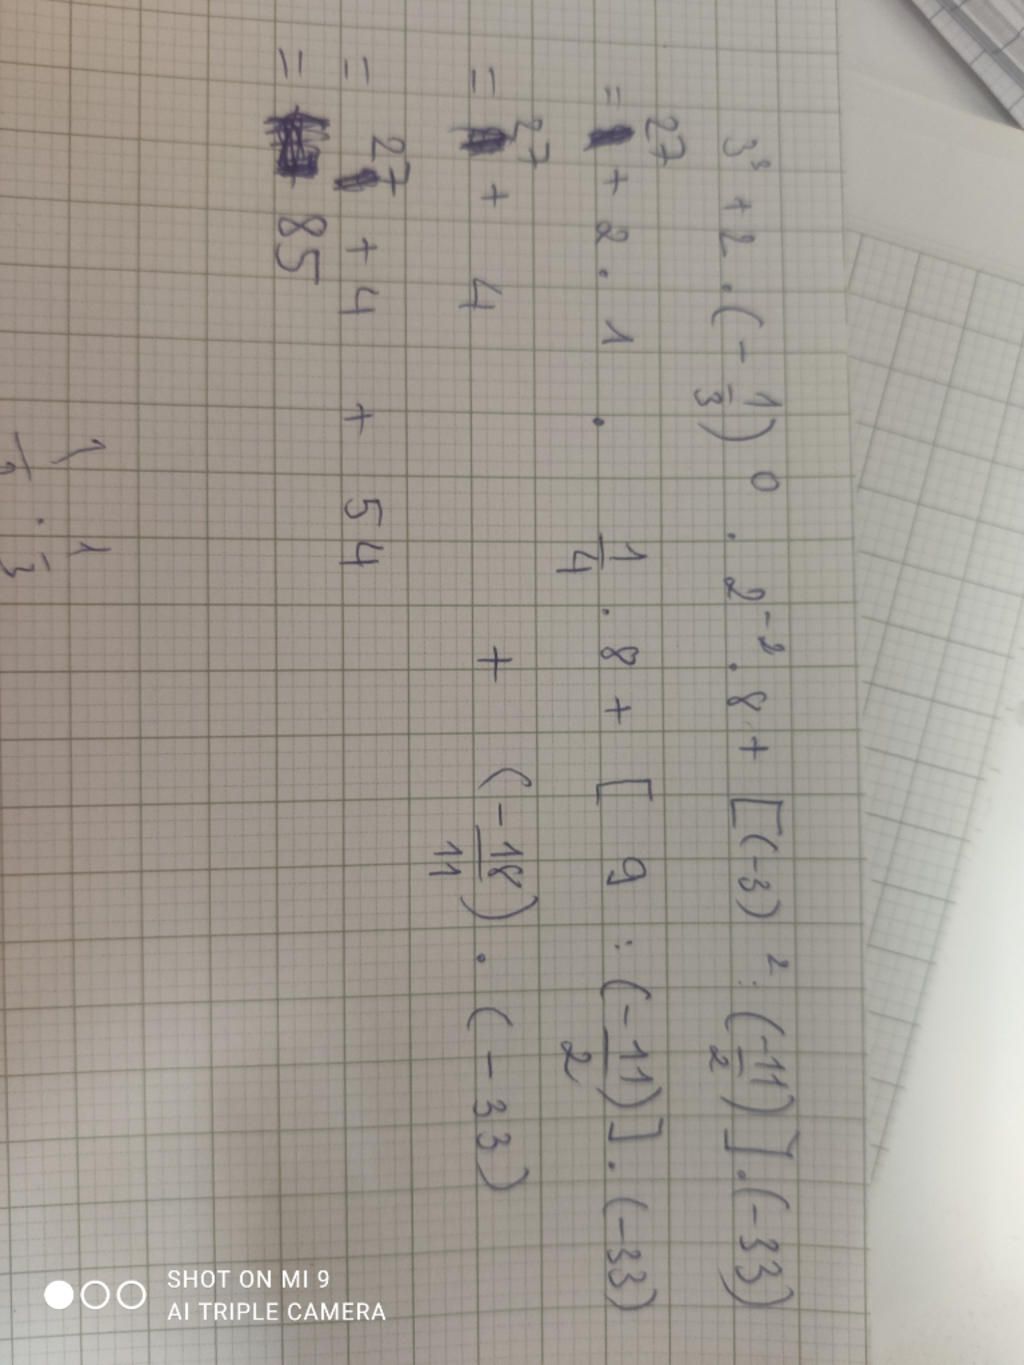 3³ + 2 · (-1/3)⁰ · 2⁻² · 8 + [(-3)² : (-11/2)] · (-33)
= 27 + 2 · 1 · 1/4 · 8 + [ 9 : (-11/2)] · (-33)
= 27 + 4 + (-18/11) · (-33)
= 27 + 4 + 54
= 85
SHOT ON MI 9
AI TRIPLE CAMERA